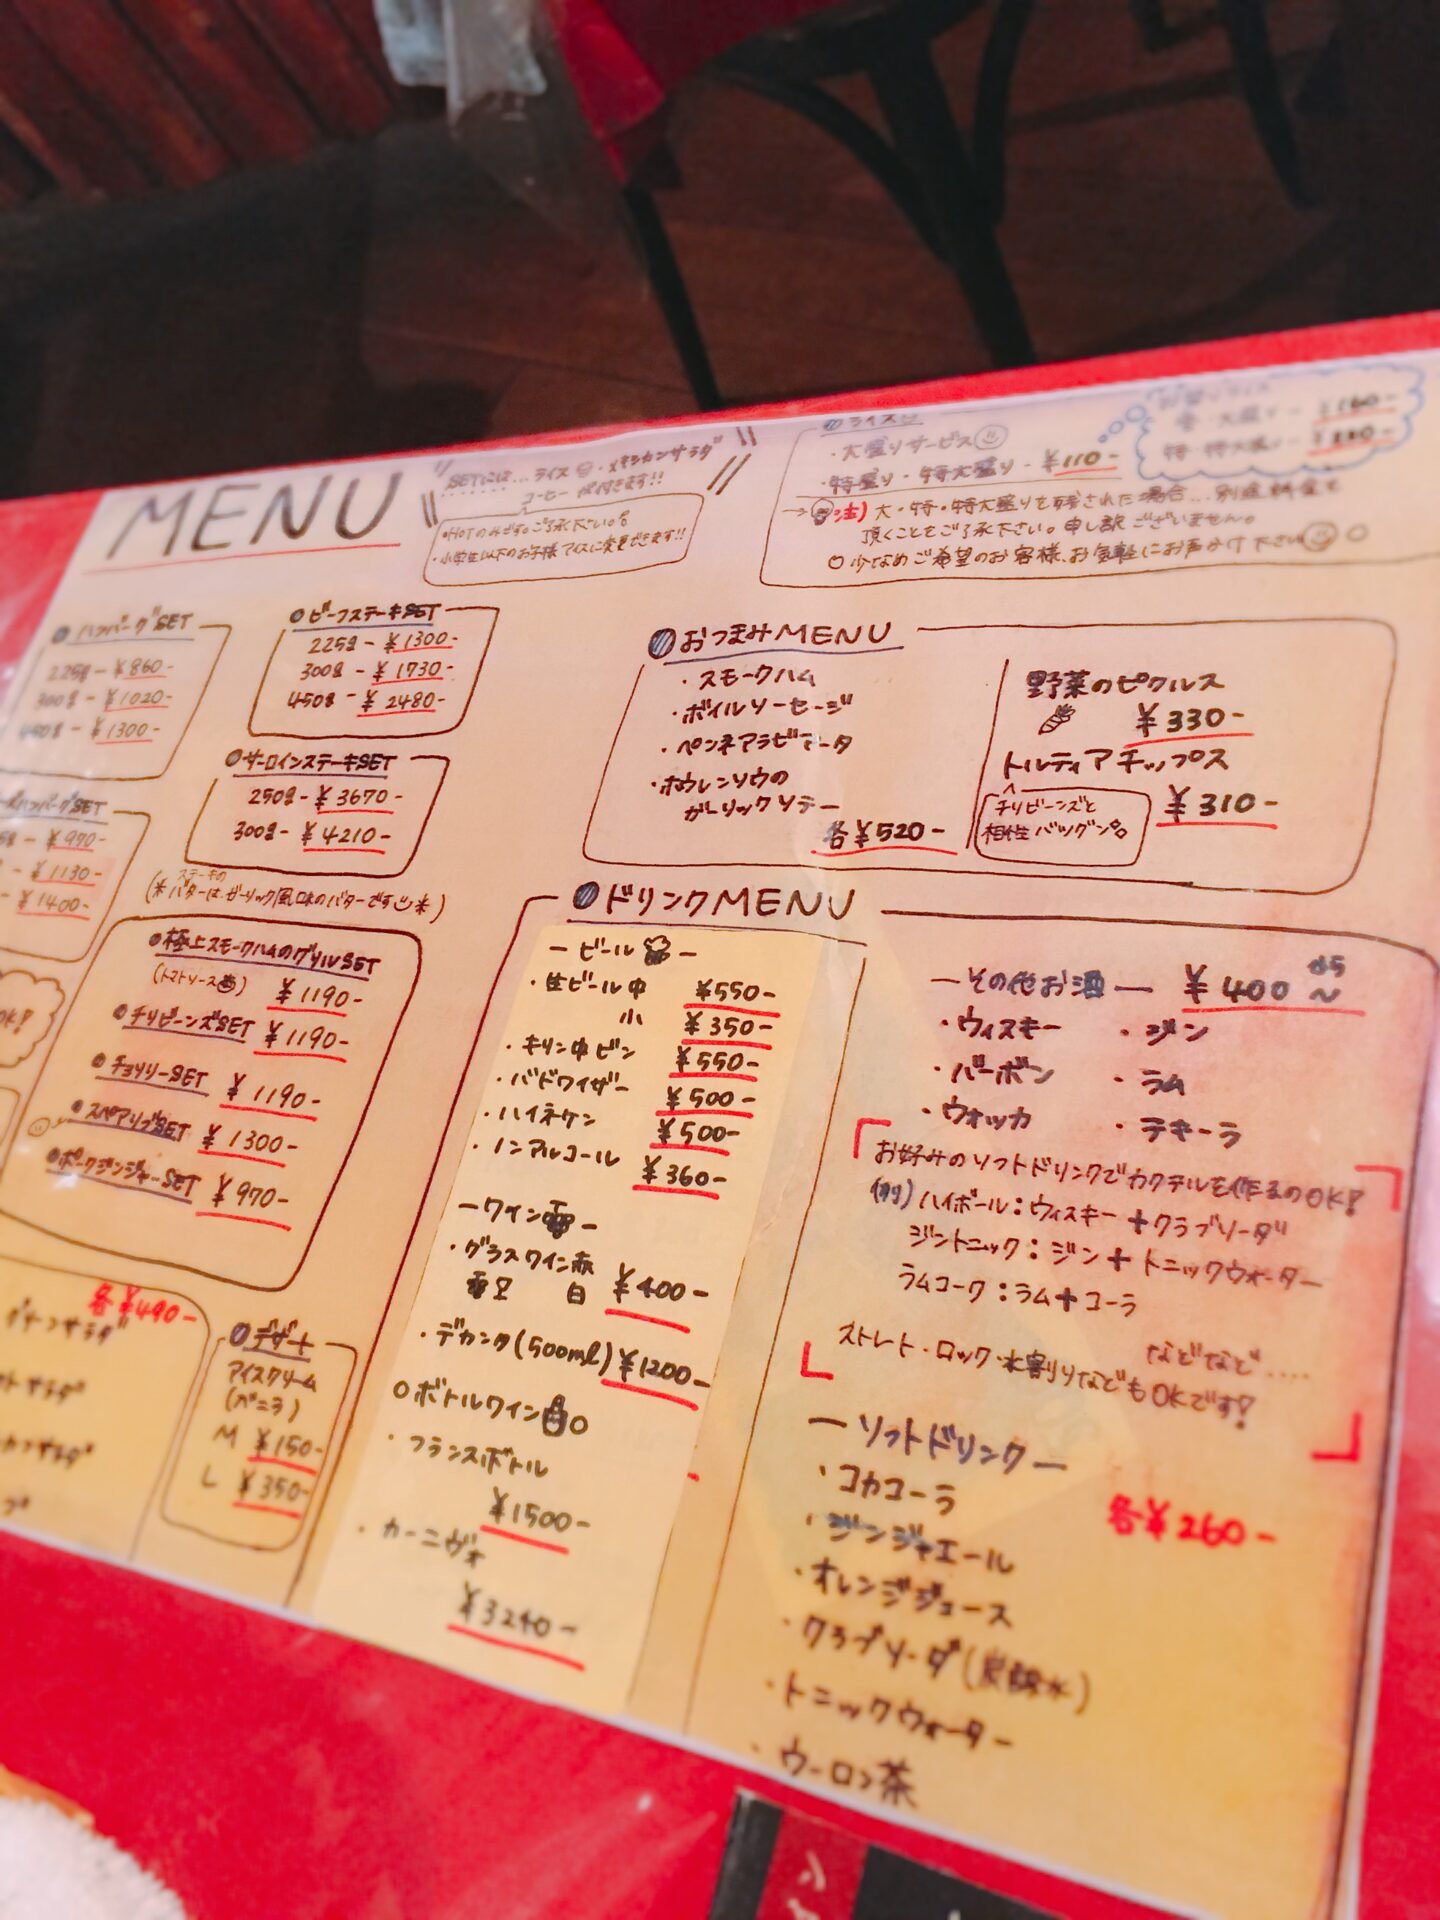 MENU
SETには…ライス・メキシカンサラダ
コーヒーが付きます!!
・HOTのみです。ご了承下さい。
・小学生以下のお子様アイスに変更できます!!
ライス
・大盛りサービス
・特盛り・特大盛り-¥110-
注) 大・特・特大盛りを残された場合…別途料金を
頂くことをご了承下さい。申し訳ございません。
○少なめご希望のお客様、お気軽にお声がけ下さい
¥160-
¥220-
ハンバーグSET
225g-¥860-
300g-¥1020-
450g-¥1300-
ビーフステーキSET
225g-¥1300-
300g-¥1730-
450g-¥2480-
サーロインステーキSET
250g-¥3670-
300g-¥4210-
ハンバーグSET
¥970-
¥1130-
¥1400-
(※ステーキのバターは、ガーリック風味のバターです※)
極上スモークハムのグリルSET
(トマトソース) ¥1190-
チリビーンズSET ¥1190-
チョリソーSET ¥1190-
スペアリブSET ¥1300-
ポークジンジャーSET ¥970-
OK!
各¥490-
サラダ
サラダ
サラダ
デザート
アイスクリーム
(バニラ)
M ¥150-
L ¥350-
おつまみMENU
・スモークハム
・ボイルソーセージ
・ペンネアラビアータ
・ホウレンソウの
ガーリックソテー
各¥520-
野菜のピクルス
¥330-
トルティアチップス
¥310-
チリビーンズと
相性バツグン
ドリンクMENU
-ビール-
・生ビール中 ¥550-
小 ¥350-
・キリン中ビン ¥550-
・バドワイザー ¥500-
・ハイネケン ¥500-
・ノンアルコール ¥360-
-ワイン-
・グラスワイン赤
白 ¥400-
・デカンタ(500ml) ¥1200-
○ボトルワイン○
・フランスボトル
¥1500-
・カーニヴォ
¥3240-
-その他お酒- ¥400から~
・ウィスキー ・ジン
・バーボン ・ラム
・ウォッカ ・テキーラ
お好みのソフトドリンクでカクテルを作るのOK!
(例)ハイボール:ウィスキー+クラブソーダ
ジントニック:ジン+トニックウォーター
ラムコーク:ラム+コーラ
などなど....
ストレート・ロック・水割りなどもOKです!
-ソフトドリンク-
・コカコーラ
各¥260-
・ジンジャエール
・オレンジジュース
・クラブソーダ(炭酸水)
・トニックウォーター
・ウーロン茶